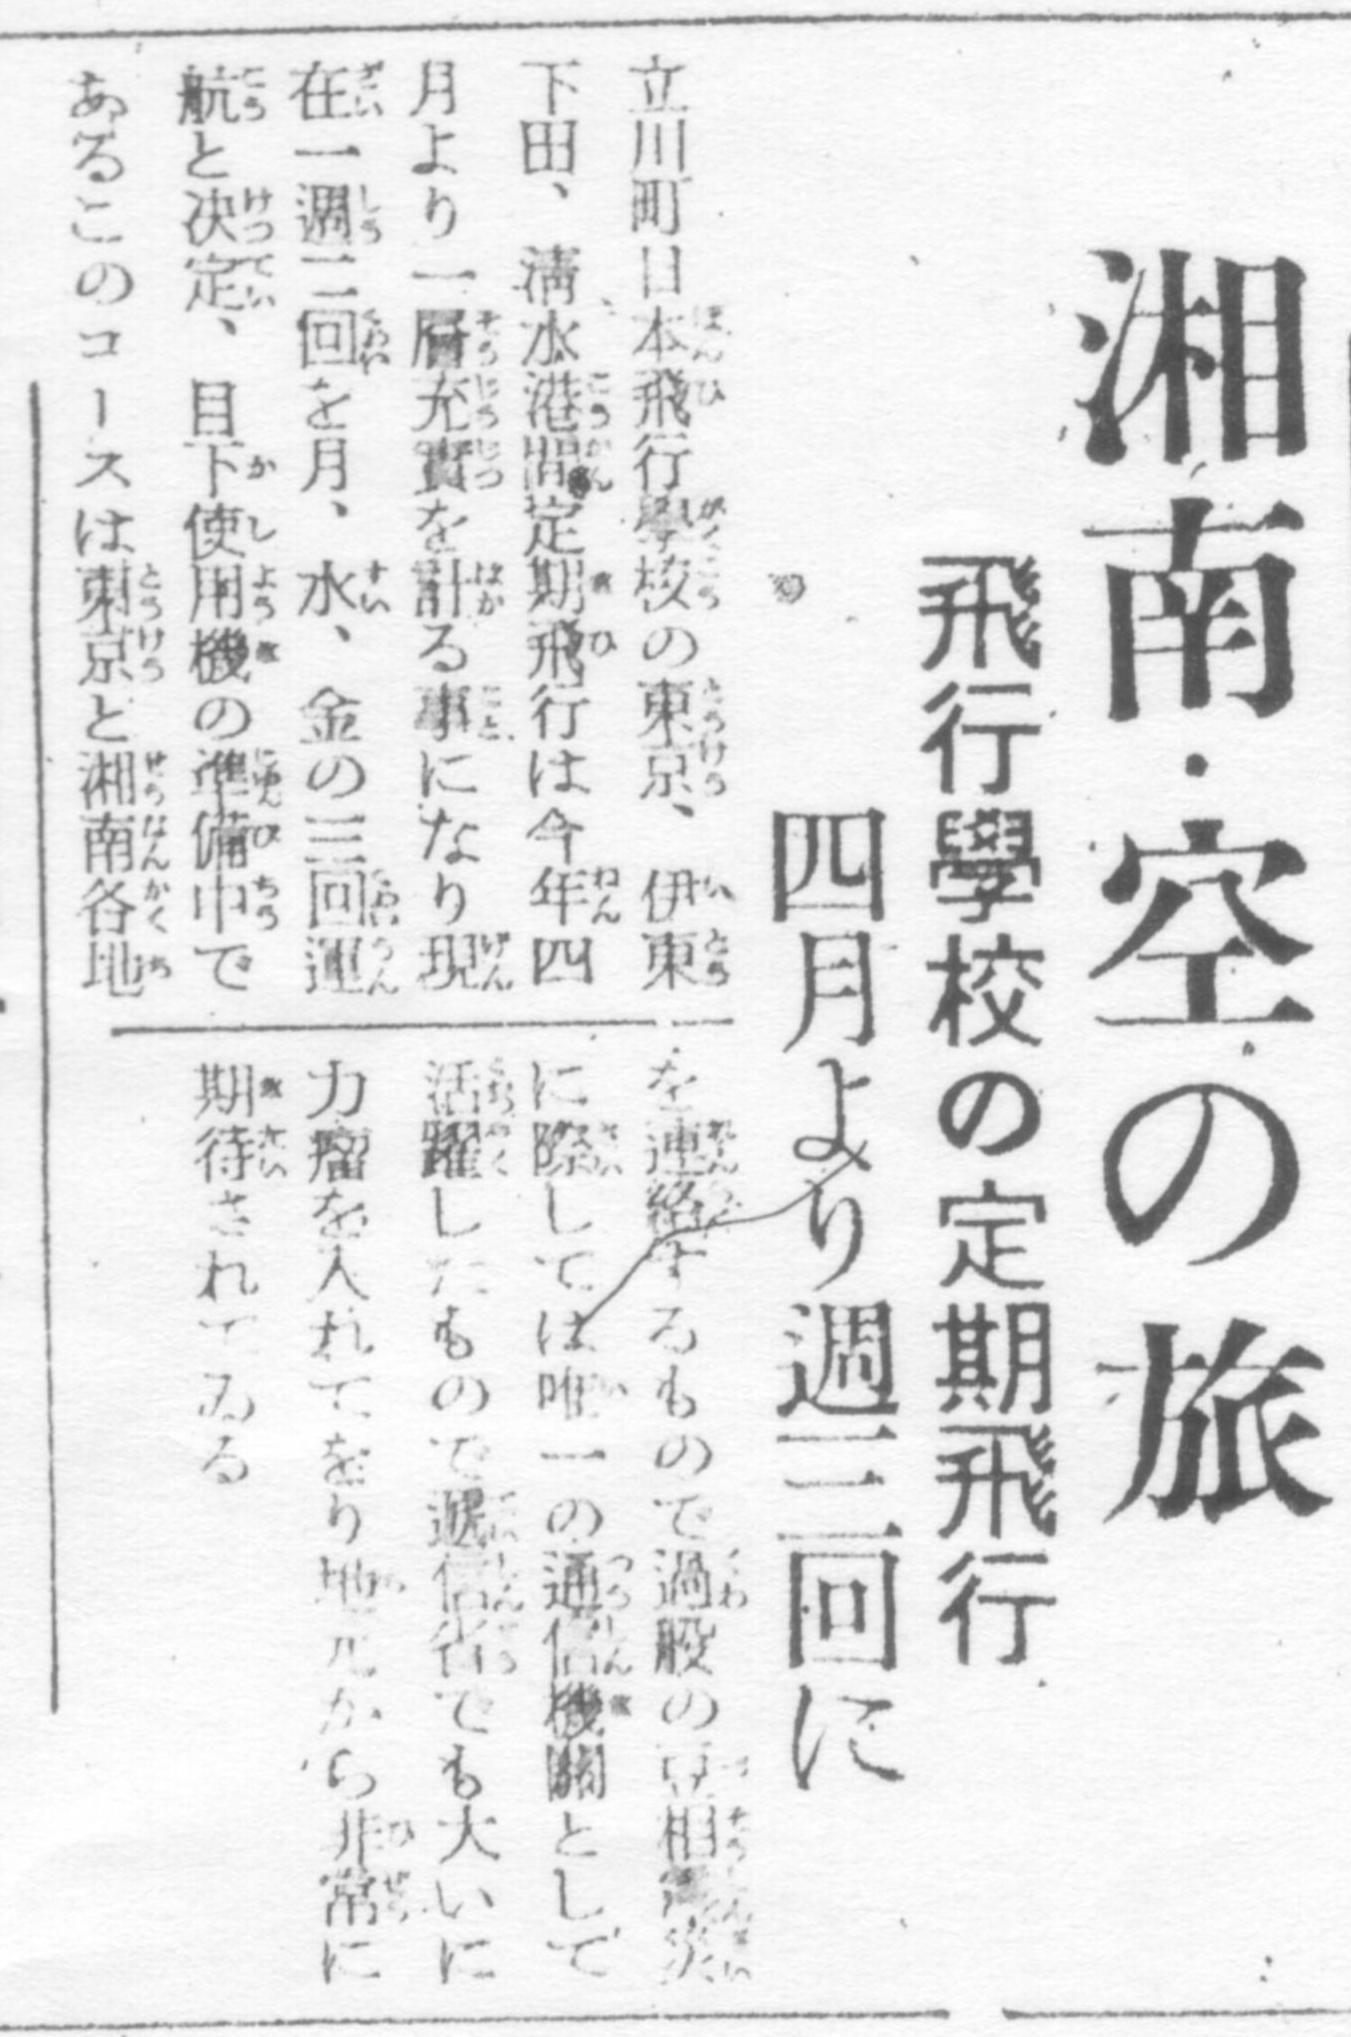 湘南・空の旅
飛行學校の定期飛行
四月より週三回に
立川町日本飛行學校の東京、伊東
下田、淸水港間定期飛行は今年四
月より一層充實を計る事になり現
在一週二回を月、水、金の三回運
航と決定、目下使用機の準備中で
あるこのコースは東京と湘南各地
を連絡するもので過般の豆相震災
に際しては唯一の通信機關として
活躍したもので遞信省でも大いに
力瘤を入れてをり地元から非常に
期待されてゐる